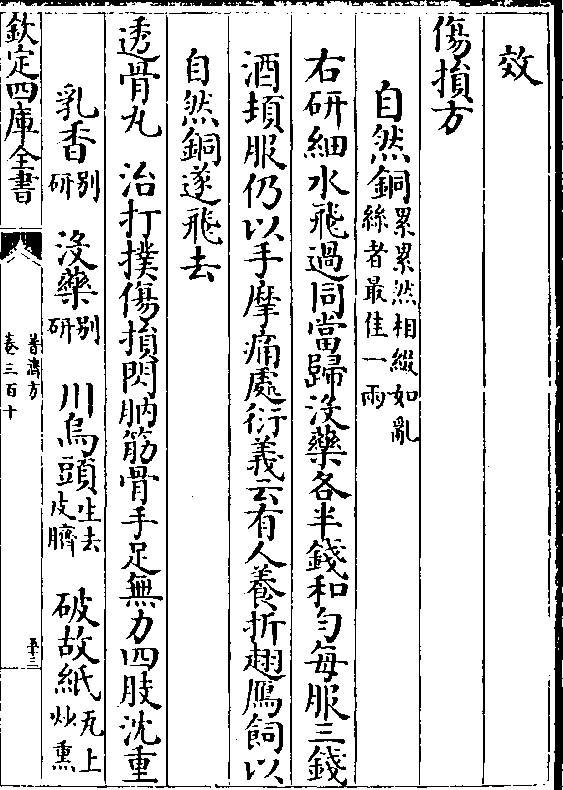 效
傷損方
自然銅累累然相綴如亂絲者最佳一兩
右研細水飛過同當歸沒藥各半錢和勻每服三錢
酒頓服仍以手摩痛處衍義云有人養折翅鴈飼以
自然銅遂飛去
透骨丸　治打撲傷損閃肭筋骨手足無力四肢沈重
乳香别研　沒藥别研　川烏頭生去皮臍　破故紙瓦上炒熏
欽定四庫全書
普濟方
卷三百十
五十三